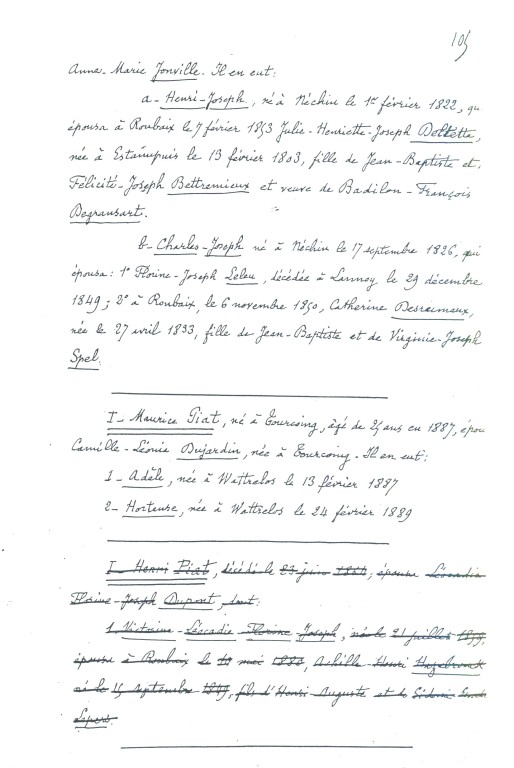 105
Anne-Marie Jonville. Il en eut:
a- Henri-Joseph, né à Néchin le 1er février 1822, qu
épousa à Roubaix le 7 février 1853 Julie-Henriette-Joseph
née à Estaimpuis le 13 février 1803, fille de Jean-Baptiste et
Félicité-Joseph Bettremieux et veuve de Badilon-François
Degransart.
b- Charles-Joseph né à Néchin le 17 septembre 1826, qui
épousa: 1° Florine-Joseph Leleu, décédée à Lannoy le 29 décembre
1849; 2° à Roubaix, le 6 novembre 1850, Catherine Desreumaux,
née le 27 avril 1833, fille de Jean-Baptiste et de Virginie-Joseph
Spel.
I- Maurice Piat, né à Tourcoing, âgé de 25 ans en 1887, épou
Camille-Léonie Dujardin, née à Tourcoing. Il en eut:
1- Adèle, née à Wattrelos le 13 février 1887
2- Hortense, née à Wattrelos le 24 février 1889
I- Henri Piat, décédé le 23 juin, épousa Léocadie
Florine-Joseph Dupont, dont:
1. Victorine-Léocadie Florine Joseph, née le 21 juillet
épousa à Roubaix le mai, Achille Henri Hazebrouck
né le 15 septembre 1849, fils d'Henri Auguste et de Sidonie
Lepers.